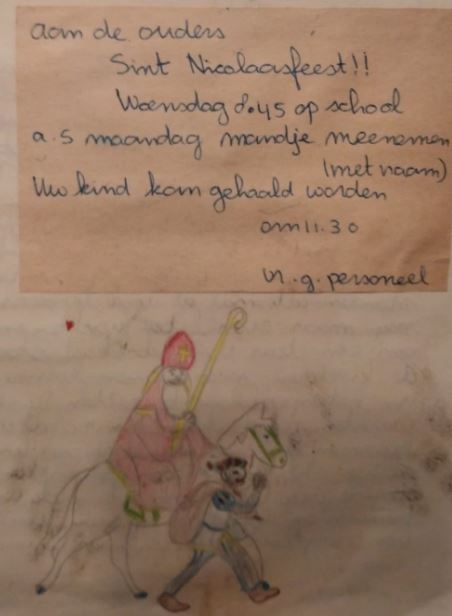 aan de ouders
Sint Nicolaasfeest!!
Woensdag 8.45 op school
a.s maandag mandje meenemen
(met naam)
Uw kind kan gehaald worden
om 11.30
vr. g. personeel